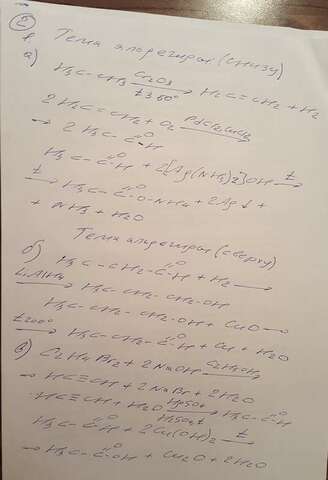 ②
Тема альдегиды (снизу)
а)
H₃C-CH₃ Cr₂O₃ → H₂C=CH₂ + H₂
2H₂C=CH₂ + O₂ PdCl₂, CuCl₂
→ 2H₃C-C-H
O
H₃C-C-H + 2[Ag(NH₃)₂]OH t →
O
t → H₃C-C-O-NH₄ + 2Ag↓ +
O
+ NH₃ + H₂O
Тема альдегиды (сверху)
б) H₃C-CH₂-C-H + H₂ →
O
LiAlH₄ → H₃C-CH₂-CH₂-OH
H₃C-CH₂-CH₂-OH + CuO →
t 200° → H₃C-CH₂-C-H + Cu + H₂O
O
в) C₂H₄Br₂ + 2NaOH C₂H₅OH
→ HC≡CH + 2NaBr + 2H₂O
HC≡CH + H₂O HgSO₄ H₂SO₄, t → H₃C-C-H
O
H₃C-C-H + 2Cu(OH)₂ t →
O
→ H₃C-C-OH + Cu₂O + 2H₂O
O